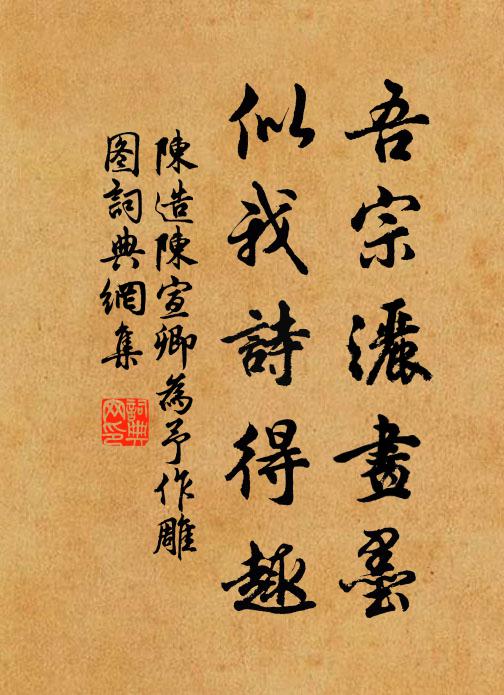 吾宗灑畫墨
似我詩得趣
陳造陳宣卿為予作雕
图詞典網集
詞典
网印